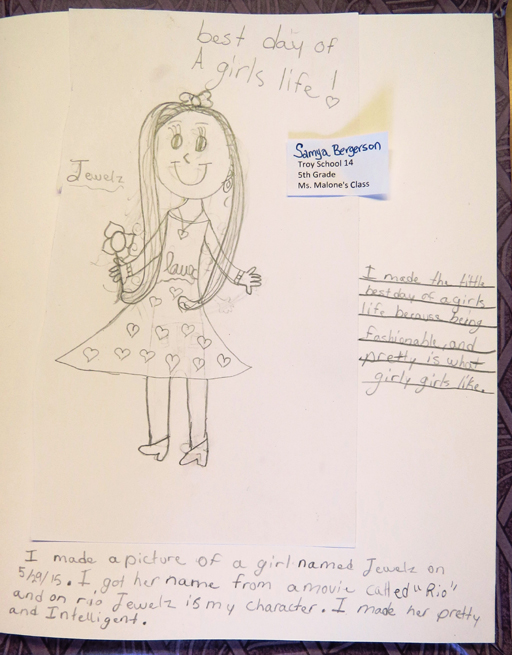 best day of
A girls life!
Jewelz
Samya Bergerson
Troy School 14
5th Grade
Ms. Malone's Class
love
I made the little
best day of a girls
life because being
fashionable, and
pretty is what
girly girls like.
I made a picture of a girl named Jewelz on
5/29/15. I got her name from a movie called "Rio"
and on rio Jewelz is my character. I made her pretty
and Intelligent.